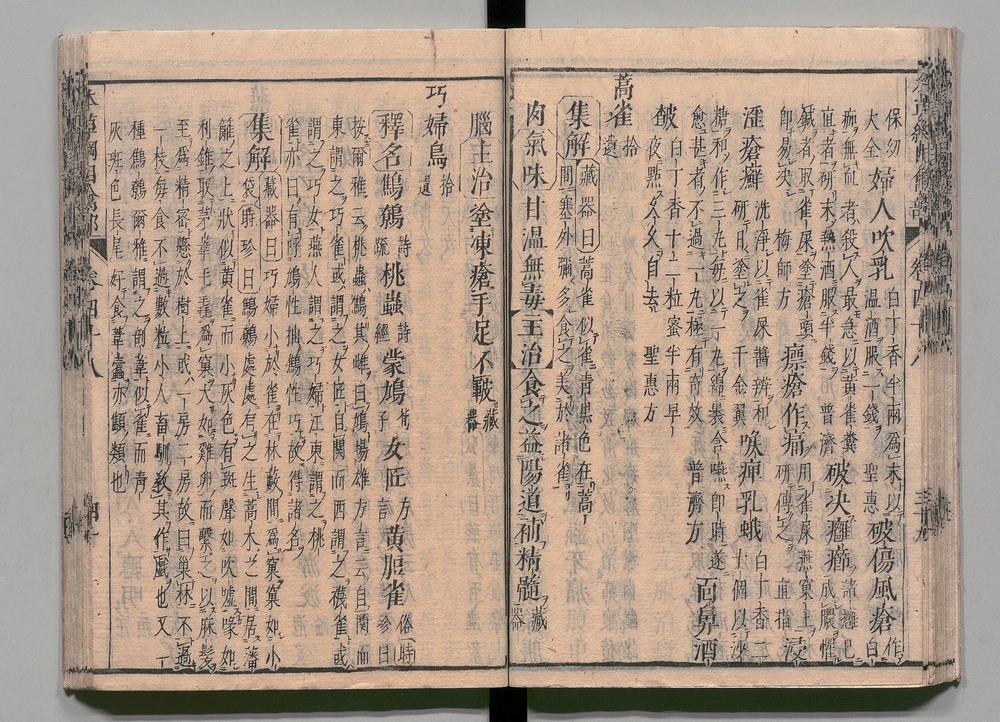 保幼大全 婦人吹乳 白丁香半兩爲末以溫酒服一錢聖惠 破傷風瘡 作白
痂無血者殺人最急以黃雀糞直者研末熱酒服半錢普濟 破決癰癤 諸癰已成膿懼
鍼者取雀屎塗瘡頭即易決梅師方 瘭瘡作痛 用雀屎燕窠土研傅之直指 浸
淫瘡癬 洗淨以雀屎醬瓣和研日塗之千金翼 喉痺乳蛾 白丁香二十個以沙
糖和作三丸每以一丸綿裹含嚥即時遂愈甚者不過二丸極有奇效普濟方 面鼻酒
皶 白丁香十二粒蜜半兩早夜點久久自去聖惠方
蒿雀 拾遺
集解 藏器曰蒿雀似雀青黑色在蒿間塞外彌多食之美於諸雀
肉氣味甘溫無毒主治食之益陽道補精髓 藏器
腦主治塗凍瘡手足不皸 藏器
巧婦鳥 拾遺
釋名鷦鷯 詩疏 桃蟲 詩經 蒙鳩 荀子 女匠 方言 黃脰雀 俗 時珍曰
按爾雅云桃蟲鷦其雌曰鴱揚雄方言云自關而
東謂之巧雀或謂之女匠自關而西謂之襪雀或
謂之巧女燕人謂之巧婦江東謂之桃
雀亦曰有呼鳩性拙鷦性巧故得諸名
集解 藏器曰巧婦小於雀在林藪間爲窠窠如小
袋時珍曰鷦鷯處處有之生蒿木之間居藩
籬之上狀似黃雀而小灰色有斑聲如吹噓喙如
利錐取茅葦毛毳爲窠大如雞卵而繫之以麻髮
至爲精密懸於樹上或一房二房故曰巢林不過
一枝每食不過數粒小人畜馴教其作戲也又一
種鷦鷯爾雅謂之剖葦似雀而青
灰斑色長尾好食葦蠹亦鷦類也